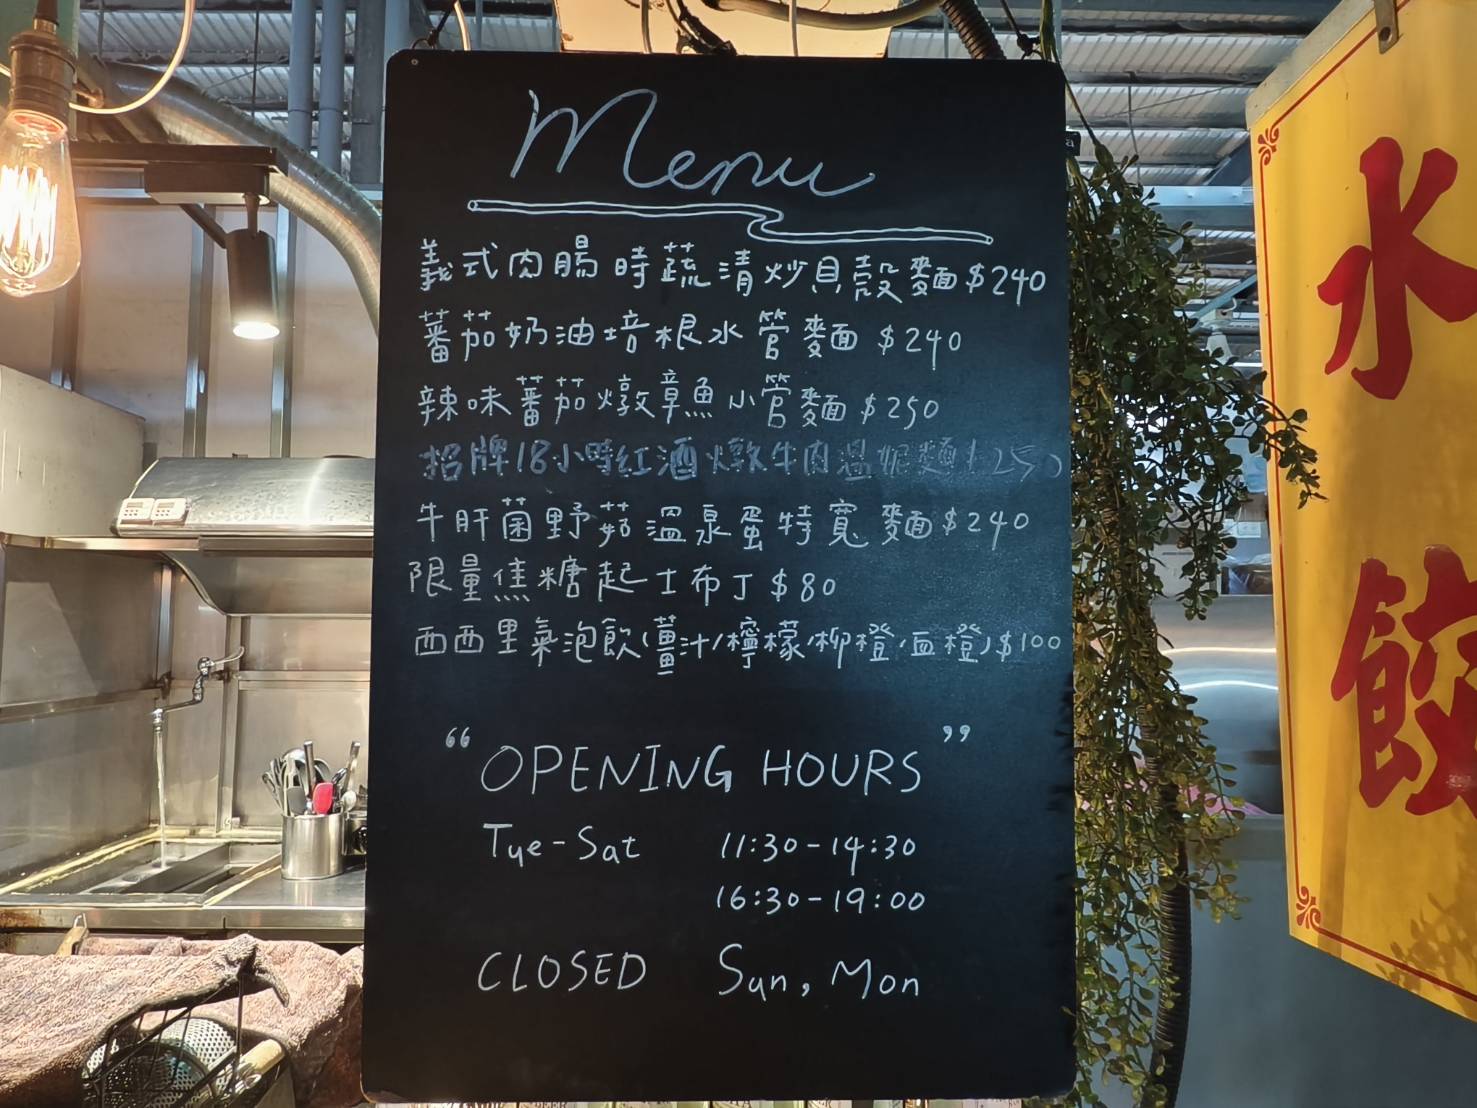 Menu
義式肉腸時蔬清炒貝殼麵$240
蕃茄奶油培根水管麵 $240
辣味蕃茄燉章魚小管麵 $250
招牌18小時紅酒燉牛肉溫妮麵$250
牛肝菌野菇溫泉蛋特寬麵$240
限量焦糖起士布丁$80
西西里氣泡飲(薑汁/檸檬/柳橙/血橙)$100
“OPENING HOURS”
Tue-Sat 11:30-14:30
16:30-19:00
CLOSED Sun, Mon
水餃